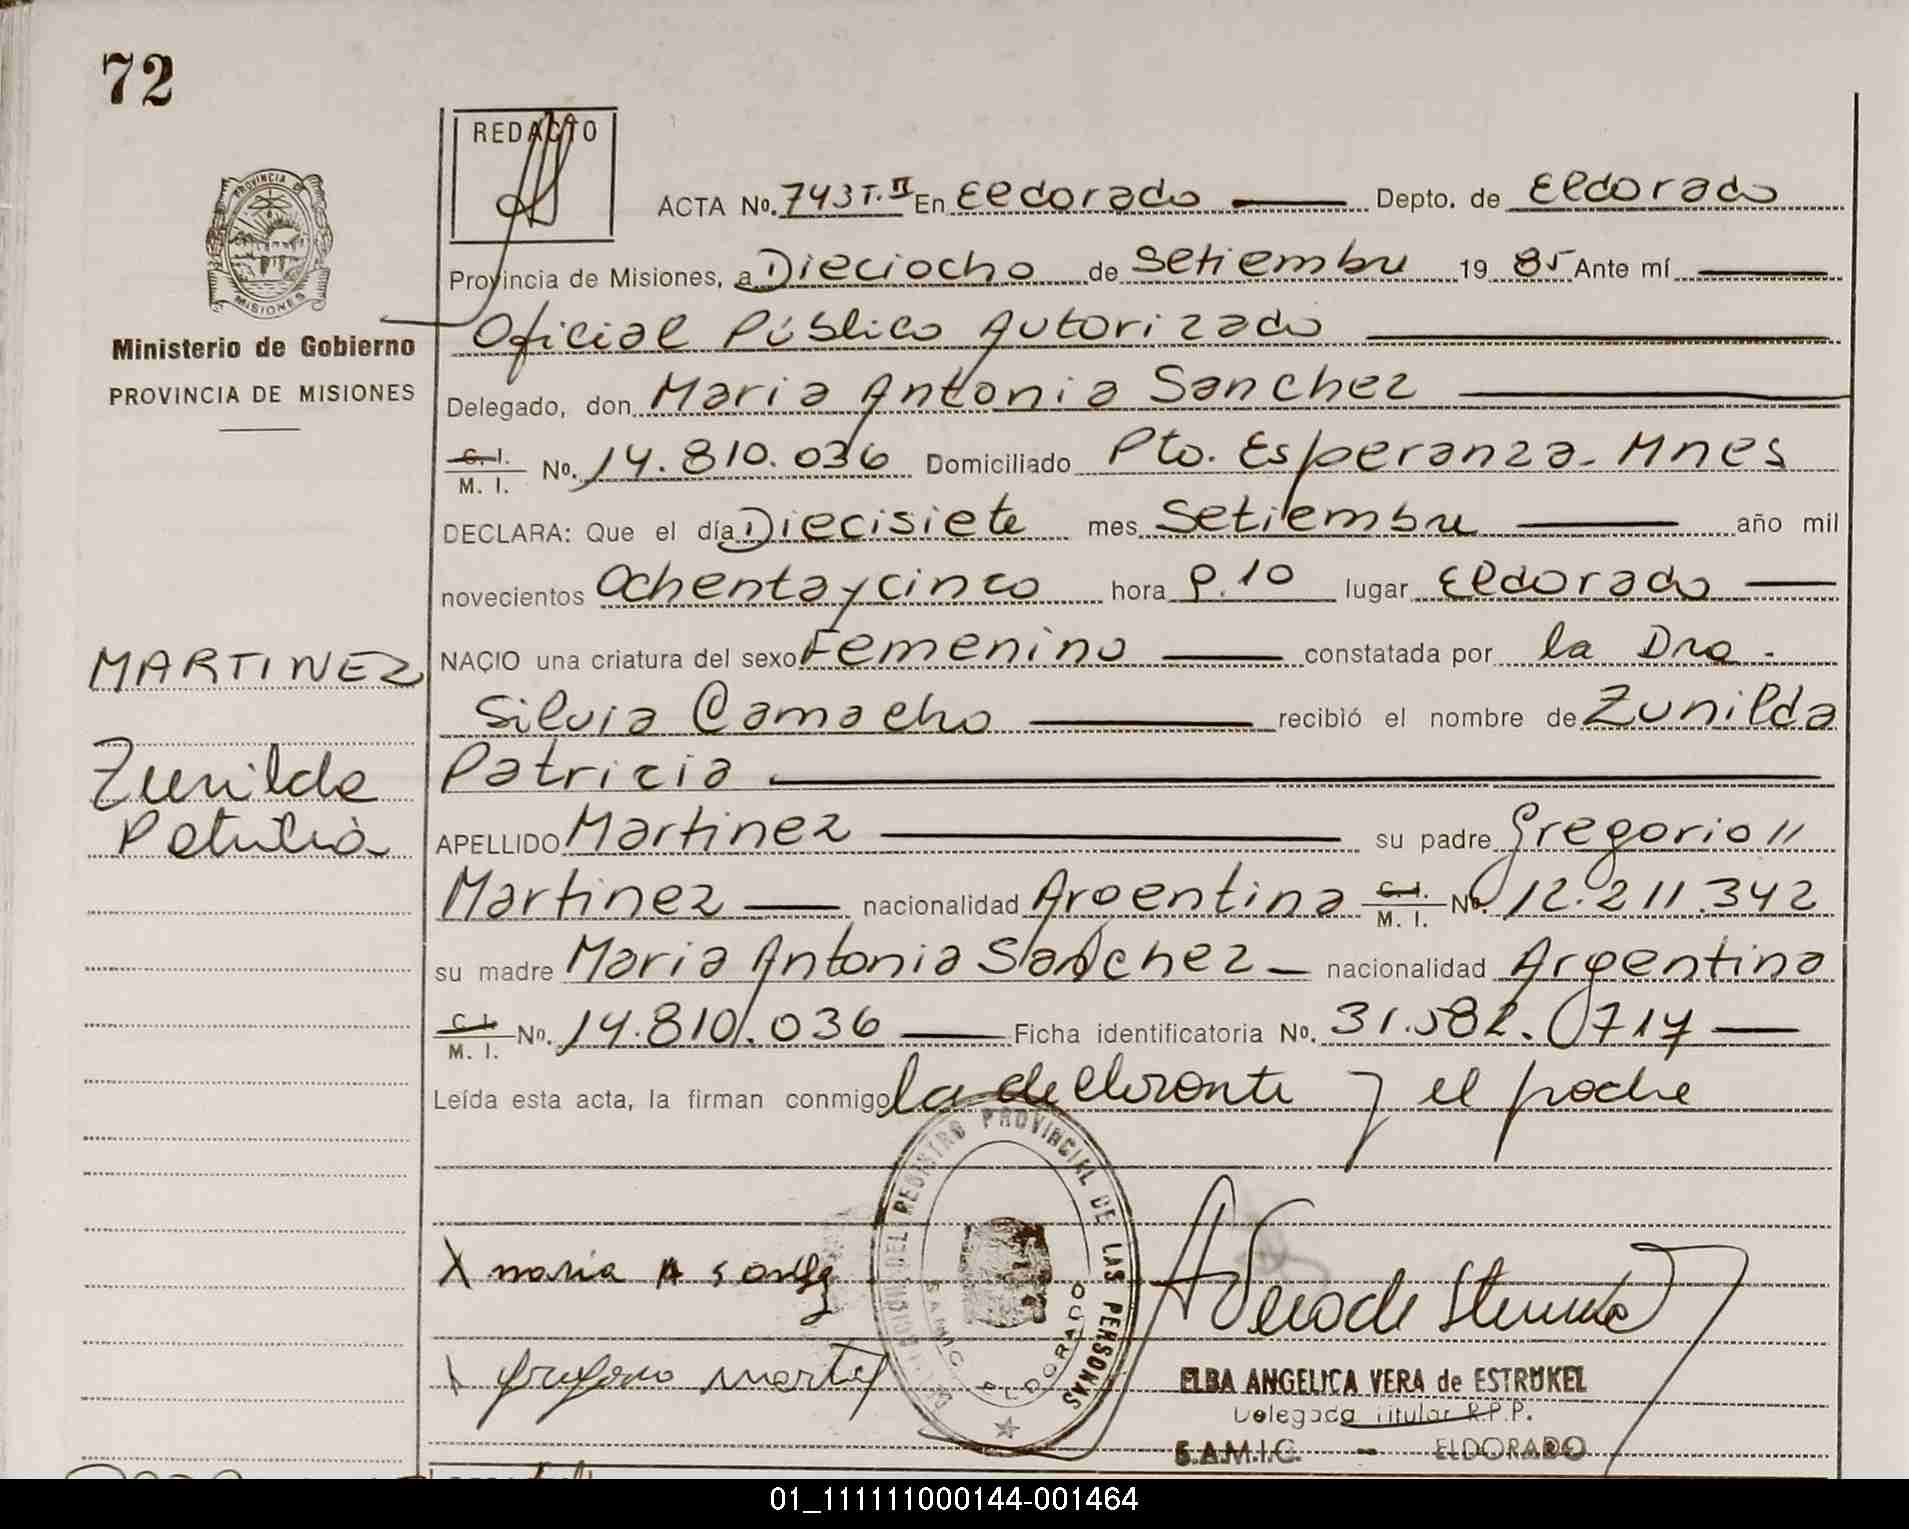 72
REDACTO
PROVINCIA DE
MISIONES
Ministerio de Gobierno
PROVINCIA DE MISIONES
ACTA No. 743 T. II En Eldorado Depto. de Eldorado
Provincia de Misiones, a Dieciocho de Setiembre 19 85 Ante mí
Oficial Público Autorizado
Delegado, don Maria Antonia Sanchez
C. I.
M. I. No. 14.810.036 Domiciliado Pto. Esperanza. Mnes
DECLARA: Que el día Diecisiete mes Setiembre año mil
novecientos Ochenta y cinco hora 9.10 lugar Eldorado
NACIO una criatura del sexo Femenino constatada por la Dra.
Silvia Camacho recibió el nombre de Zunilda
Patricia
MARTINEZ
Zunilda
Patricia
APELLIDO Martinez su padre Gregorio //
Martinez nacionalidad Argentina C. I.
M. I. No. 12.211.342
su madre Maria Antonia Sanchez nacionalidad Argentina
C. I.
M. I. No. 14.810.036 Ficha identificatoria No. 31.582.0717
Leída esta acta, la firman conmigo la declarante y el padre
DEL REGISTRO PROVINCIAL DE LAS PERSONAS
S.A.M.I.C. ELDORADO
X maria A
ELBA ANGELICA VERA de ESTRUKEL
Delegada Titular R.P.P.
S.A.M.I.C. - ELDORADO
01_111111000144-001464